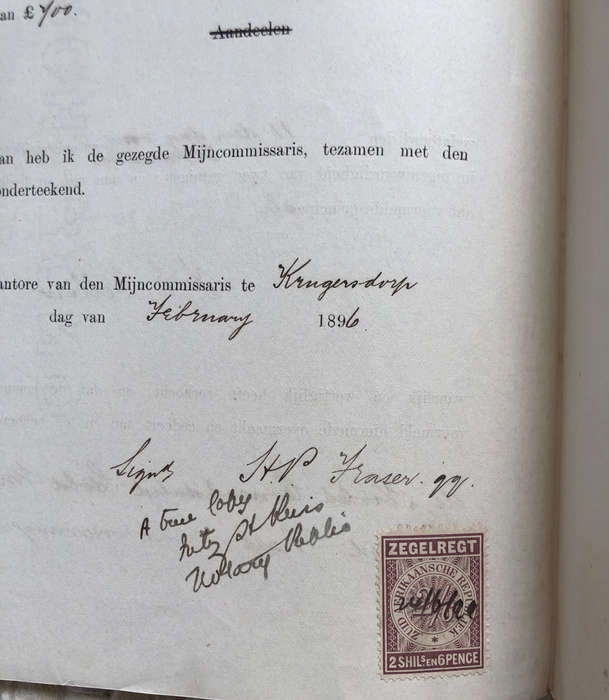 an £ 700.
Aandeelen
an heb ik de gezegde Mijncommissaris, tezamen met den
onderteekend.
antore van den Mijncommissaris te Krugersdorp
dag van February 1896
Signd H.P Fraser. qq.
A true Copy
Notary Public
ZEGELREGT
ZUID AFRIKAANSCHE REPUBLIEK
2 SHILS EN 6 PENCE